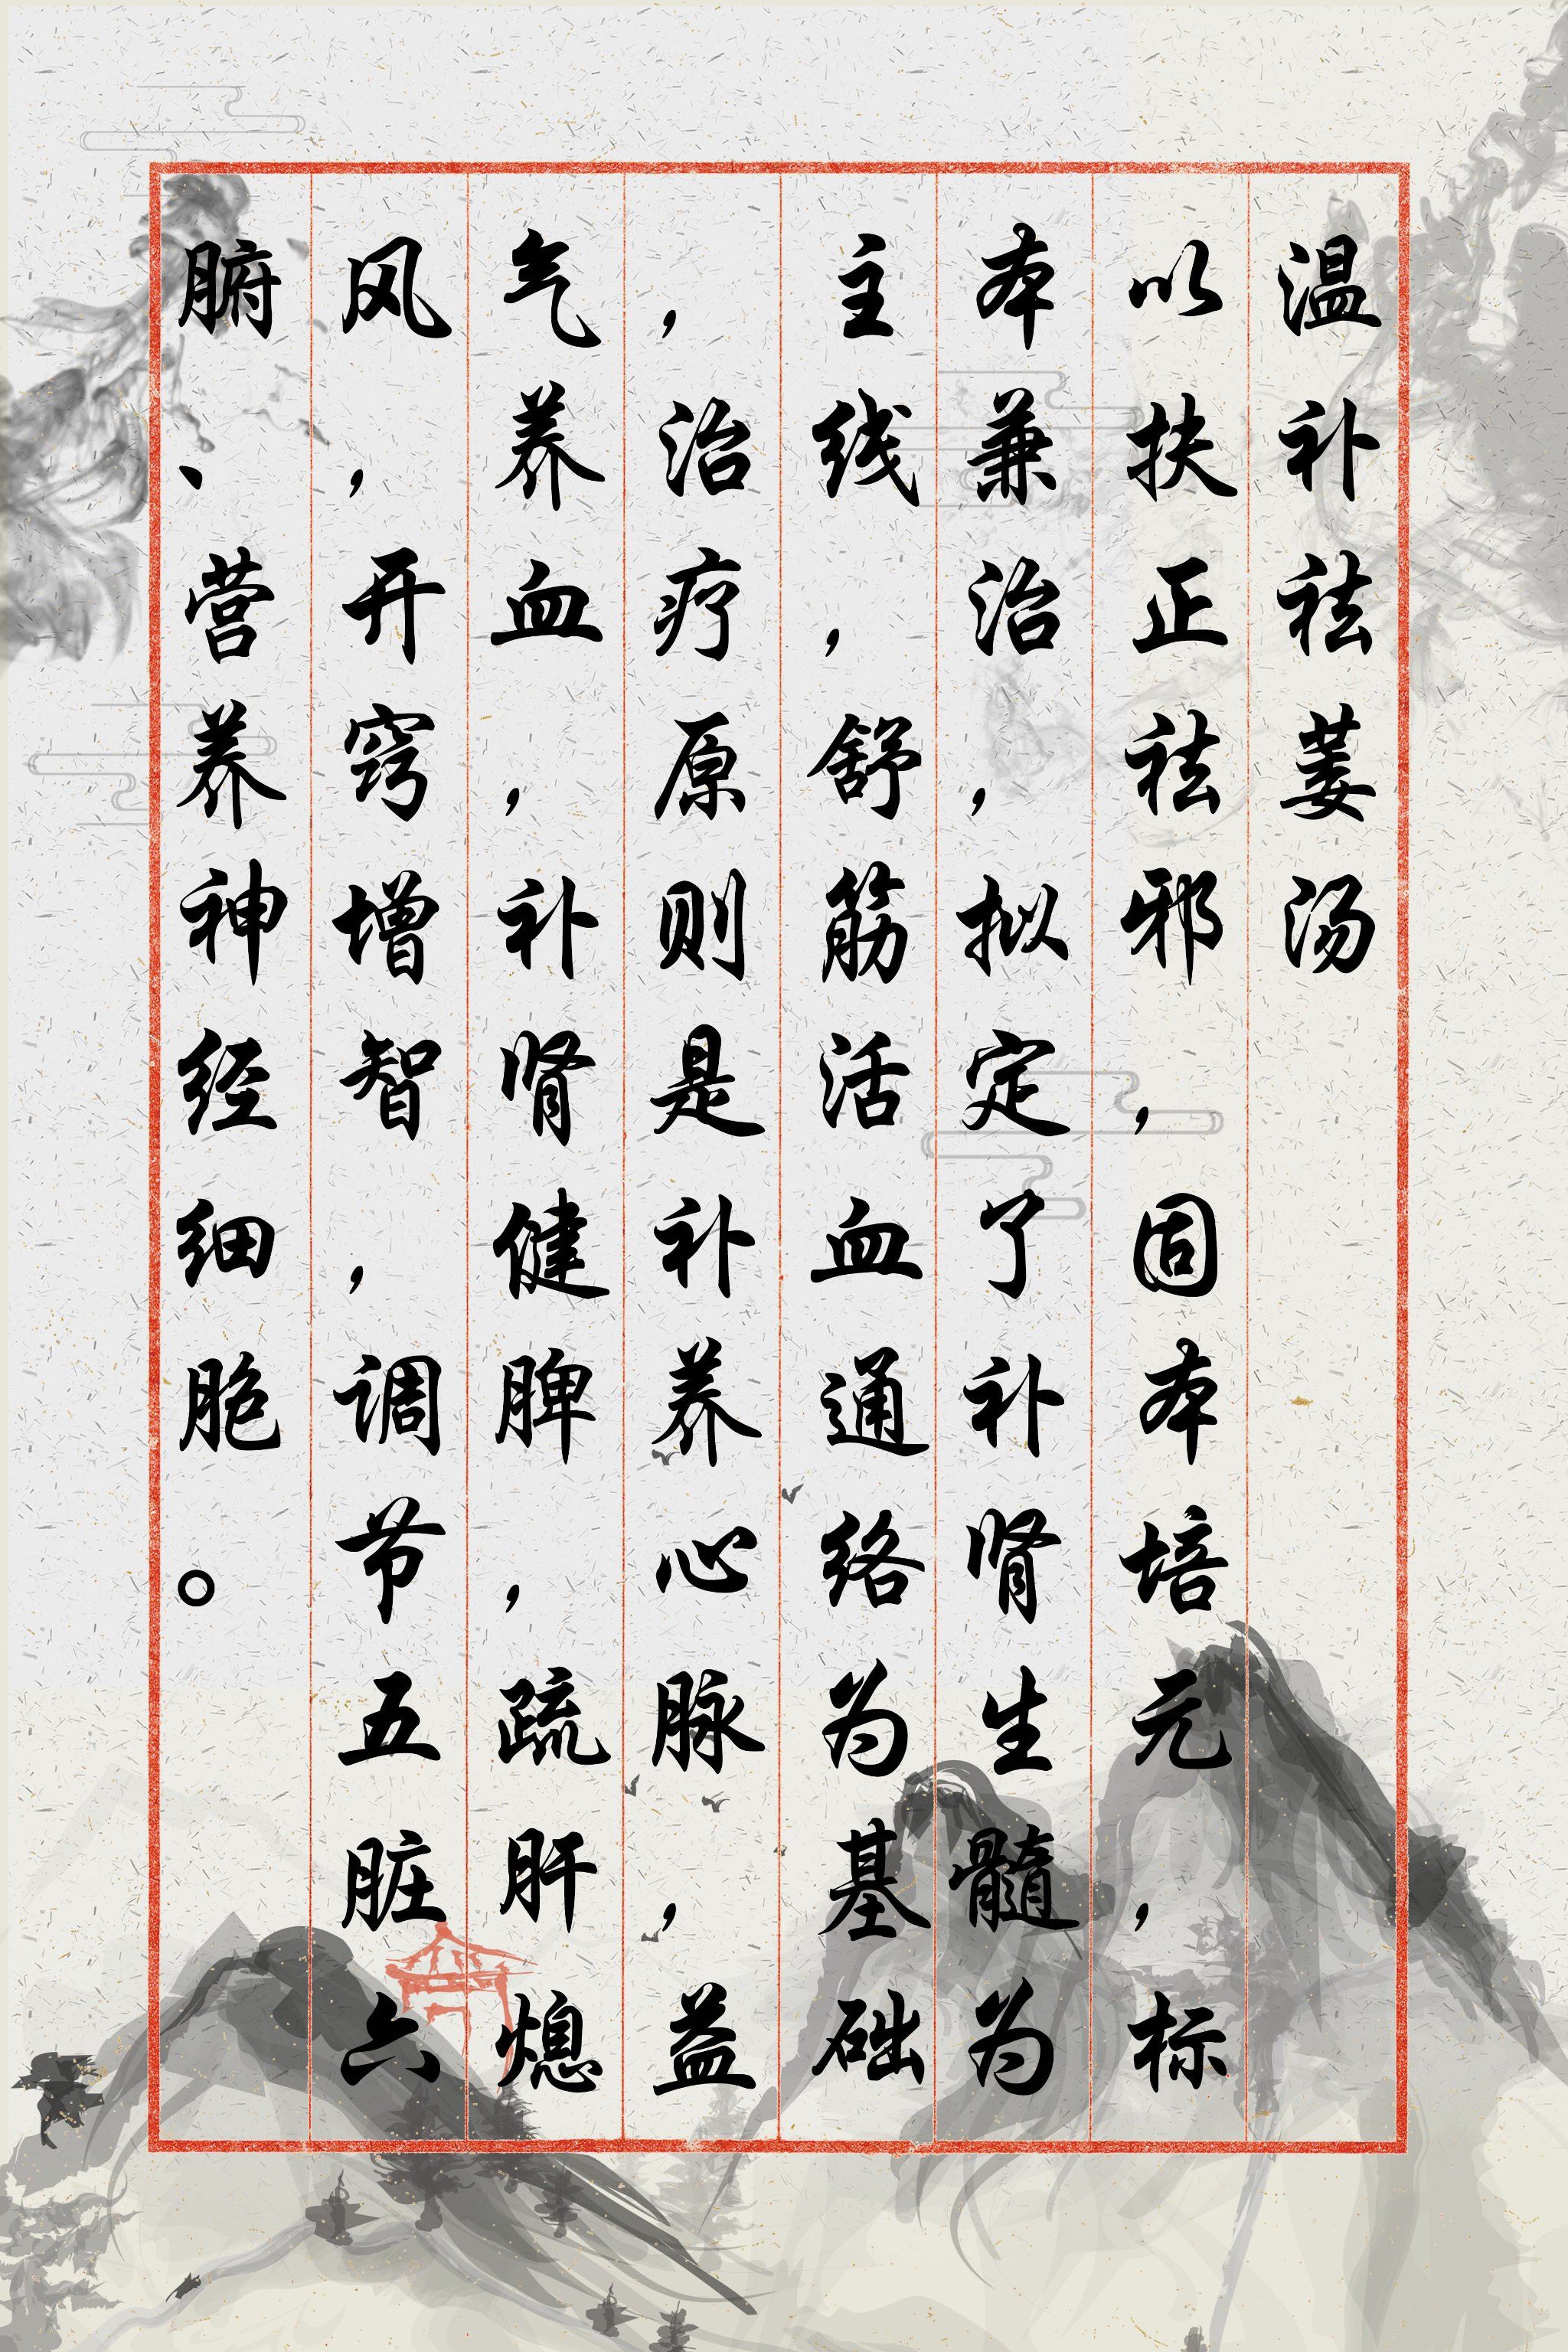 温补祛萎汤
以扶正祛邪，固本培元，标
本兼治，拟定了补肾生髓为
主线，舒筋活血通络为基础
，治疗原则是补养心脉，益
气养血，补肾健脾，疏肝熄
风，开窍增智，调节五脏六
腑、营养神经细胞。